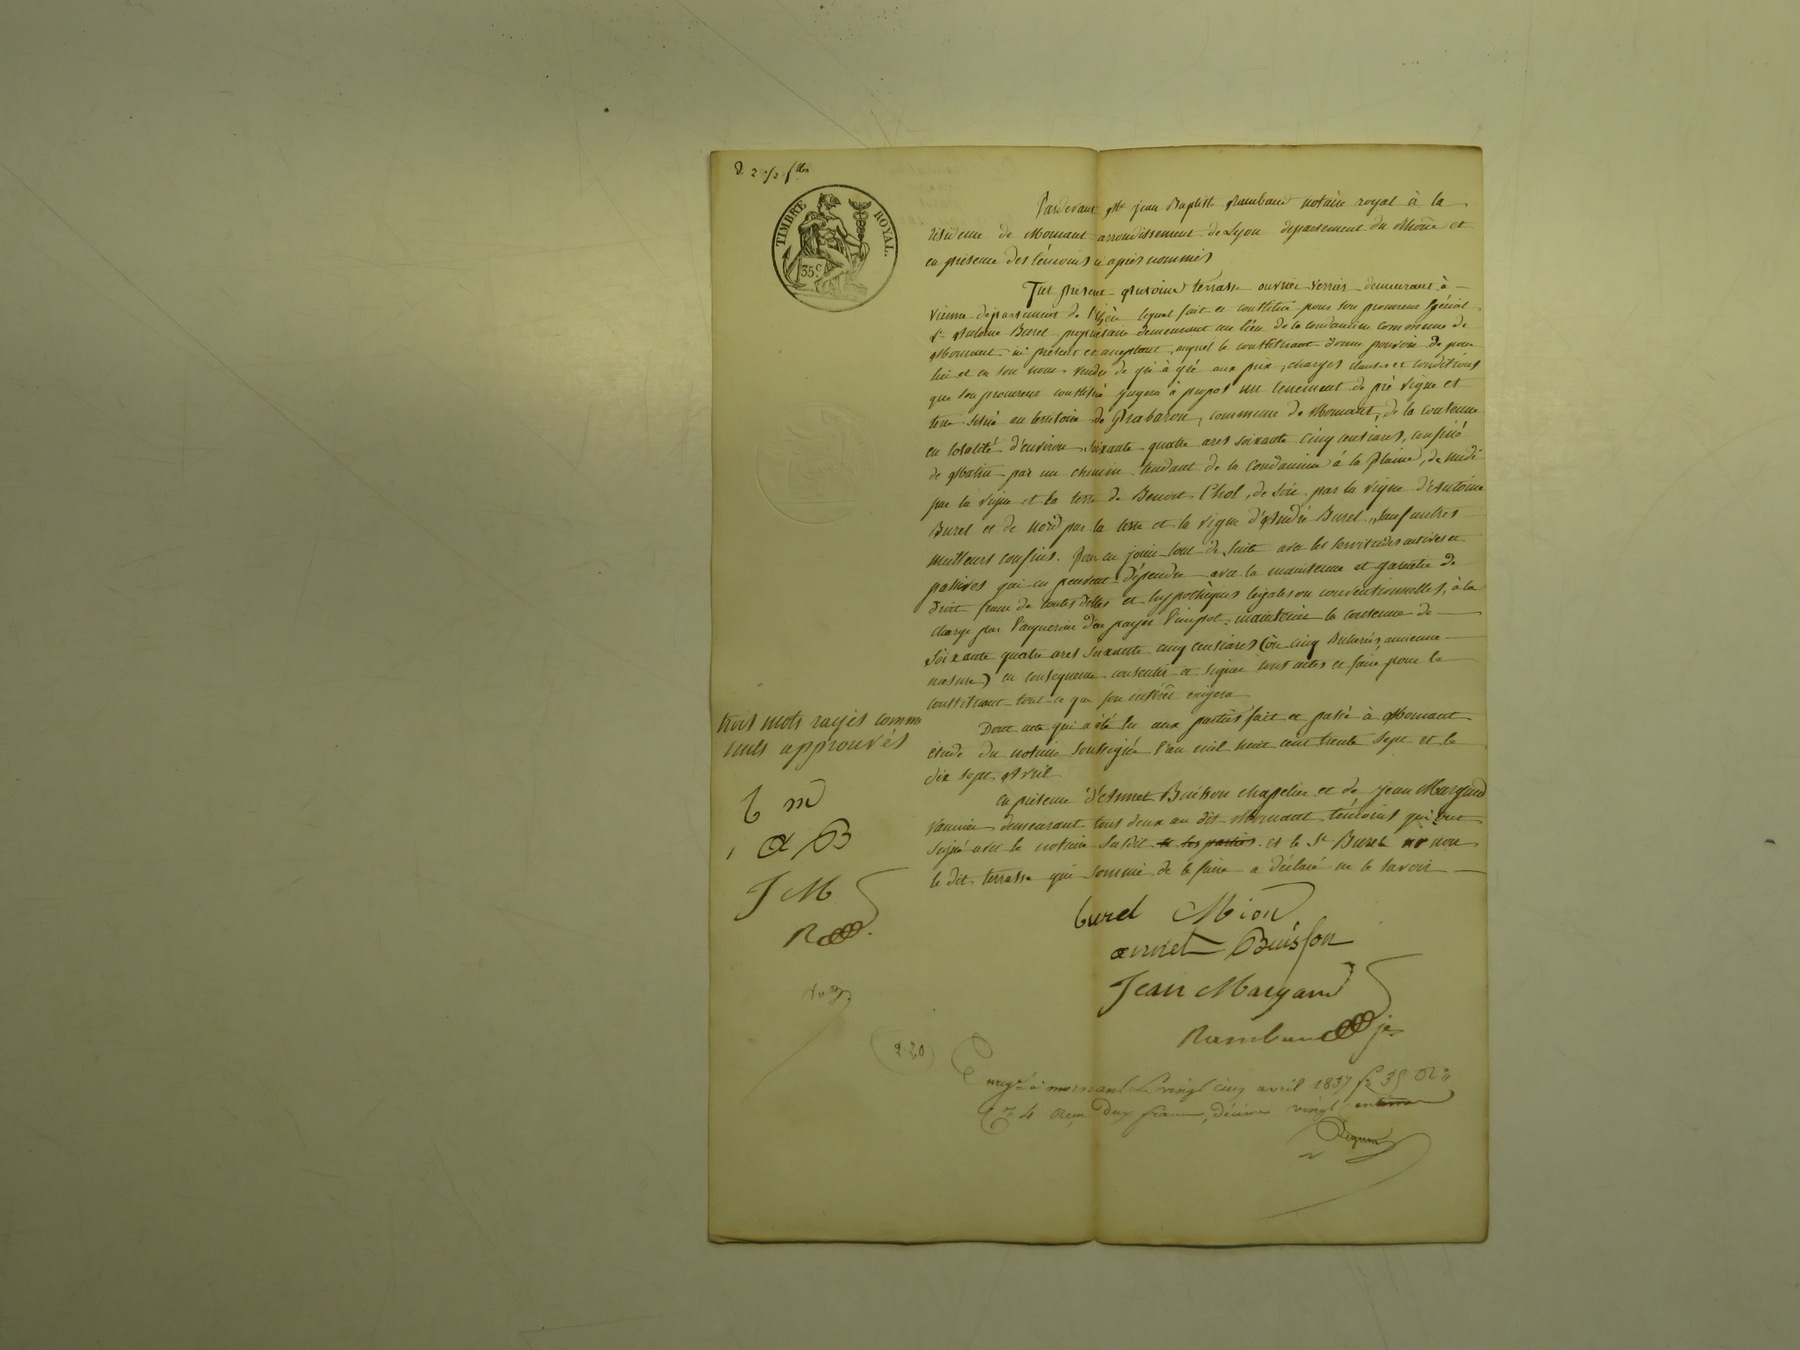 TIMBRE ROYAL.
35 c.
Pardevant Me jean Baptiste Rambaud notaire royal à la
résidence de Mornant arrondissement de Lyon département du Rhône et
en présence des témoins ci après nommés
Fut présent Antoine terrasse ouvrier verrier demeurant à
vienne département de l'isère lequel fait et constitue pour son procureur spécial
sr Antoine Burel propriétaire demeurant au lieu de la condamine commune de
Mornant ici présent et acceptant, auquel le constituant donne pouvoir de pour
lui et en son nom vendre de gré à gré aux prix, charges clauses et conditions
que son procureur constitué jugera à propos un tenement de pré vigne et
terre situé au territoire de Grabaron, commune de Mornant, de la contenue
en totalité d'environ soixante quatre ares soixante cinq centiares, confiné
de Matin par un chemin tendant de la Condamine à la Plaine, de midi
par la vigne et la terre de Benoit Chol, de soir par la vigne d'Antoine
Burel et de nord par la terre et la vigne d'André Burel, sauf autres
meilleurs confins. Pour en jouir tout de suite avec les servitudes actives et
passives qui en peuvent dépendre avec la maintenue et garantie de
droit franc de toutes dettes et hypothèques légales ou conventionnelles, à la
charge par l'acquereur d'en payer l'impôt, maintenir la contenue de
soixante quatre ares soixante cinq centiares (ou cinq Bicherés ancienne
mesure) en conséquence consentir et signer tous actes et faire pour le
constituant tout ce que son intérêt exigera
Dont acte qui a été lu aux parties fait et passé à Mornant
étude du notaire soussigné l'an mil huit cent trente sept et le
dix sept Avril
En présence d'Annet Buisson chapelier et de jean Margand
vannier demeurant tous deux au dit Mornant témoins qui ont
signé avec le notaire susdit et les parties et le Sr Burel non
le dit terrasse qui sommé de le faire a déclaré ne le savoir
trois mots rayés comme
nuls approuvés
b m
a B
J M
R
burel Mion
annet Buisson
Jean Margand
Rambaud je
2-20
Enregé à mornant le vingt cinq avril 1837 fo 35 Ro
Ce 4 Reçu Deux francs, décime vingt centimes